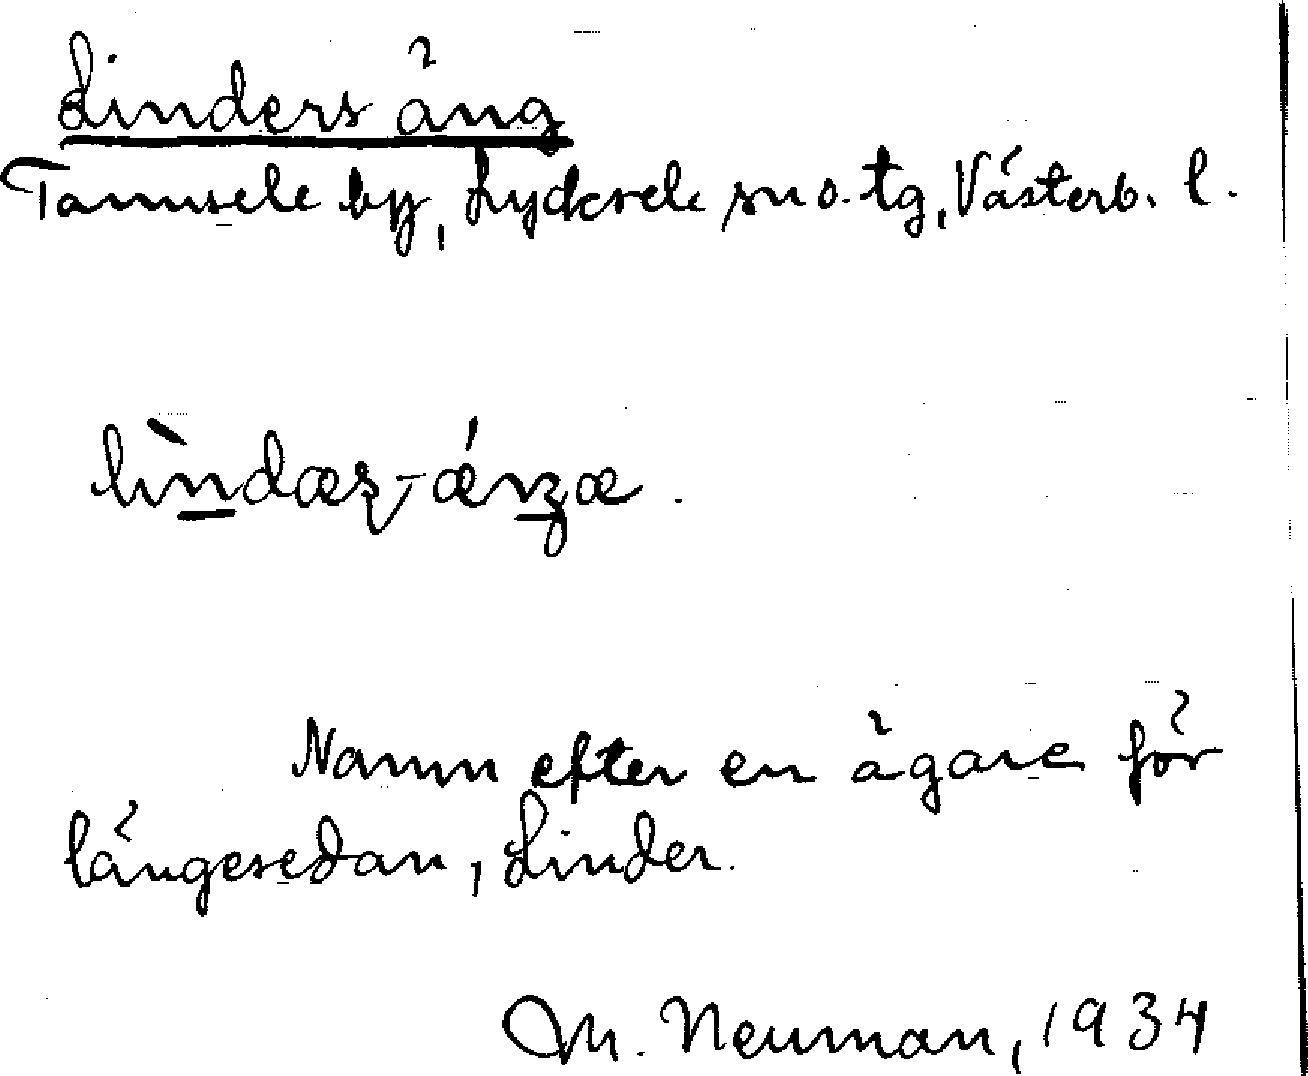 Linders äng
Tannsele by, Lycksele sn o. tg, Västerb. l.
Namn efter en ägare för
längesedan, Linder.
M. Neuman, 1934